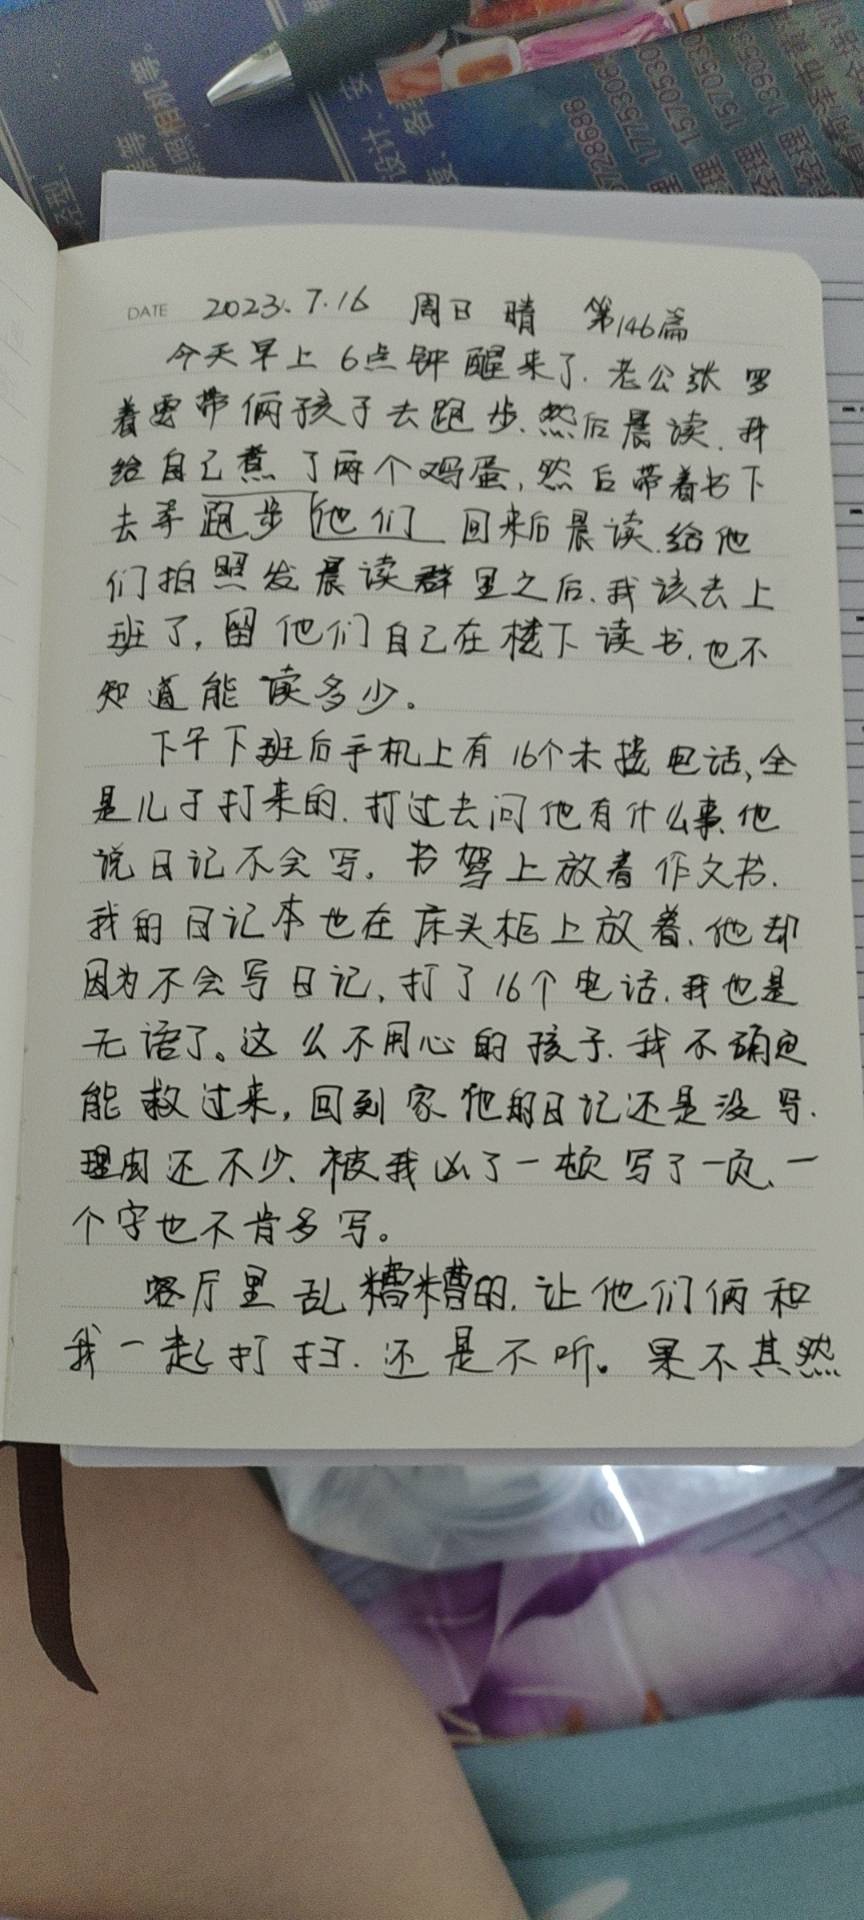 安
等。
相机等。
照相机
设计、
15728686
1775306
1570530
1570530
1390530
经理
DATE 2023.7.16 周日 晴 第146篇
今天早上6点钟醒来了.老公张罗
着要带俩孩子去跑步.然后晨读.我
给自己煮了两个鸡蛋,然后带着书下
去等跑步他们回来后晨读.给他
们拍照发晨读群里之后.我该去上
班了,留他们自己在楼下读书.也不
知道能读多少。
下午下班后手机上有16个未接电话,全
是儿子打来的.打过去问他有什么事.他
说日记不会写.书驾上放着作文书.
我的日记本也在床头柜上放着.他却
因为不会写日记,打了16个电话.我也是
无语了。这么不用心的孩子.我不确定
能救过来,回到家他的日记还是没写.
理由还不少.被我凶了一顿写了一页、一
个字也不肯多写。
客厅里乱糟糟的.让他们俩和
我一起打扫.还是不听。果不其然